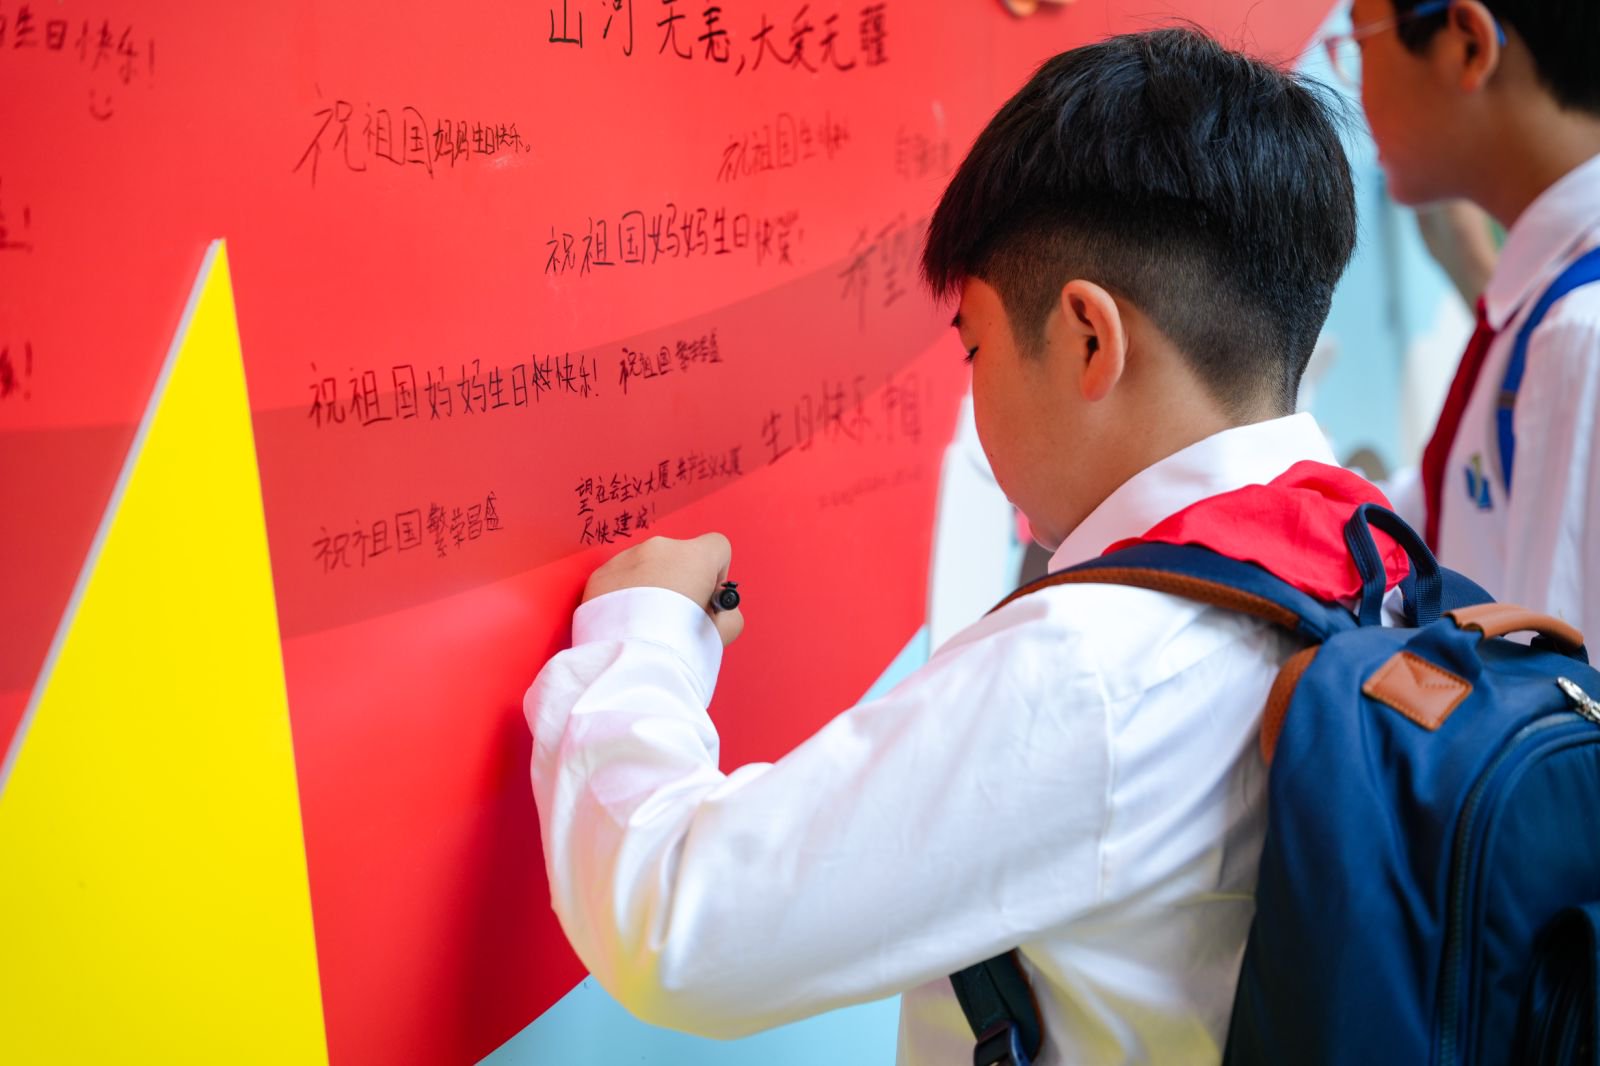 生日快乐！
山河无恙，大爱无疆
祝祖国妈妈生日快乐。
祝祖国生快
祝祖国妈妈生日快乐！
希望
祝祖国妈妈生日快乐！
祝祖国繁荣昌盛
生日快乐，中国！
祝祖国繁荣昌盛
望社会主义大厦，共产主义大厦
尽快建成！